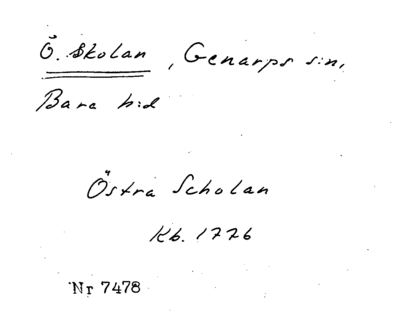 Ö. Skolan, Genarps s:n,
Bara h:d
Östra Scholan
Kb. 1776
Nr 7478